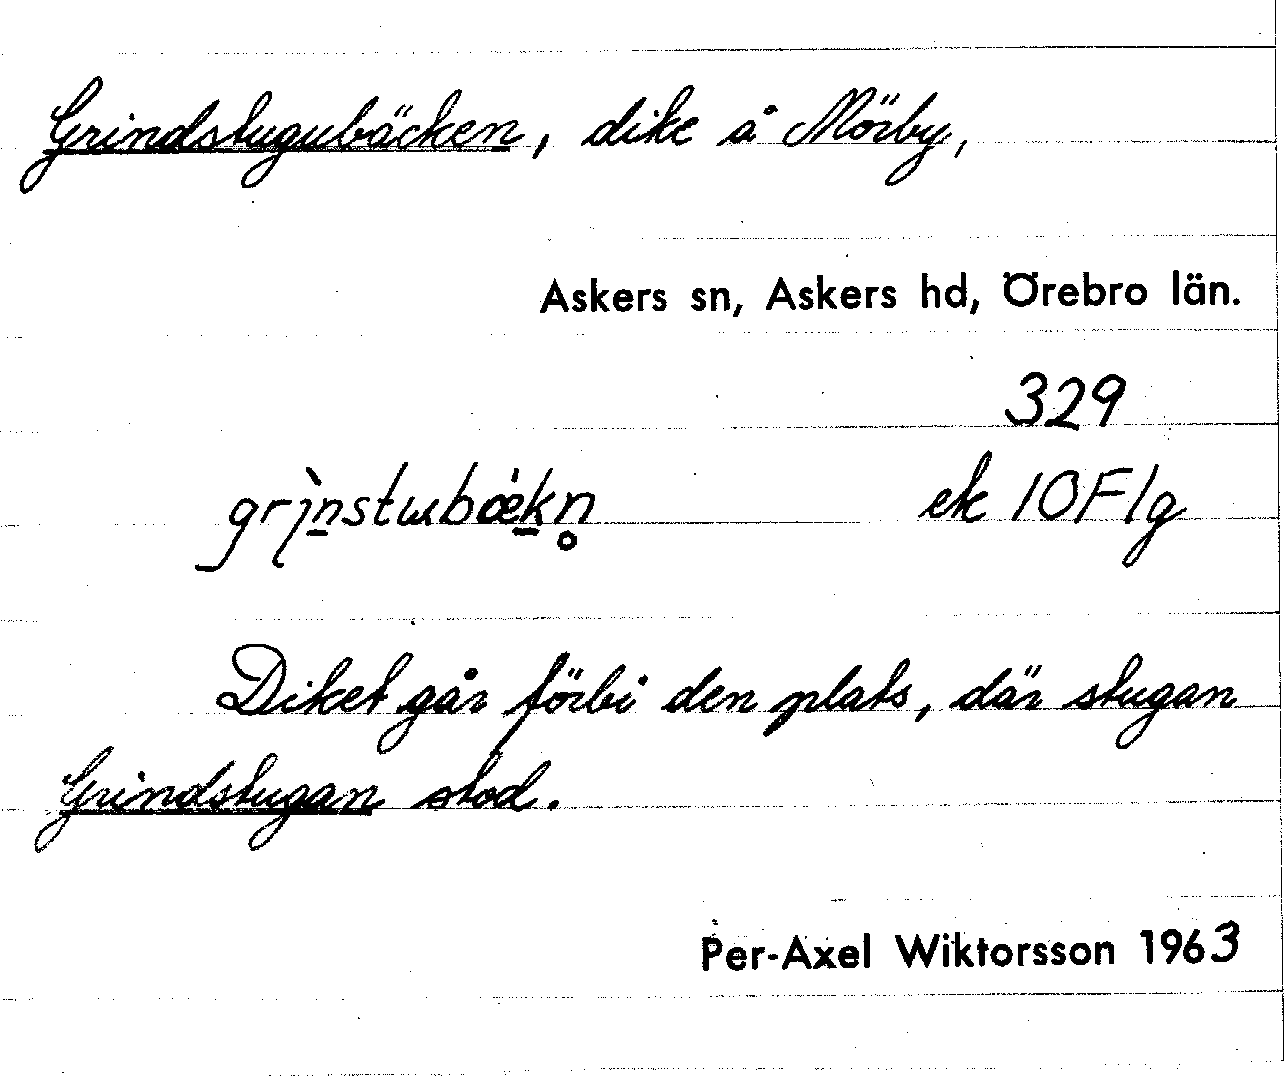 Grindstugubäcken, dike å Mörby,
Askers sn, Askers hd, Örebro län.
329
grı̀n̠stɯbœ́k̠n̥ ek 10F1g
Diket går förbi den plats, där stugan
Grindstugan stod.
Per-Axel Wiktorsson 1963